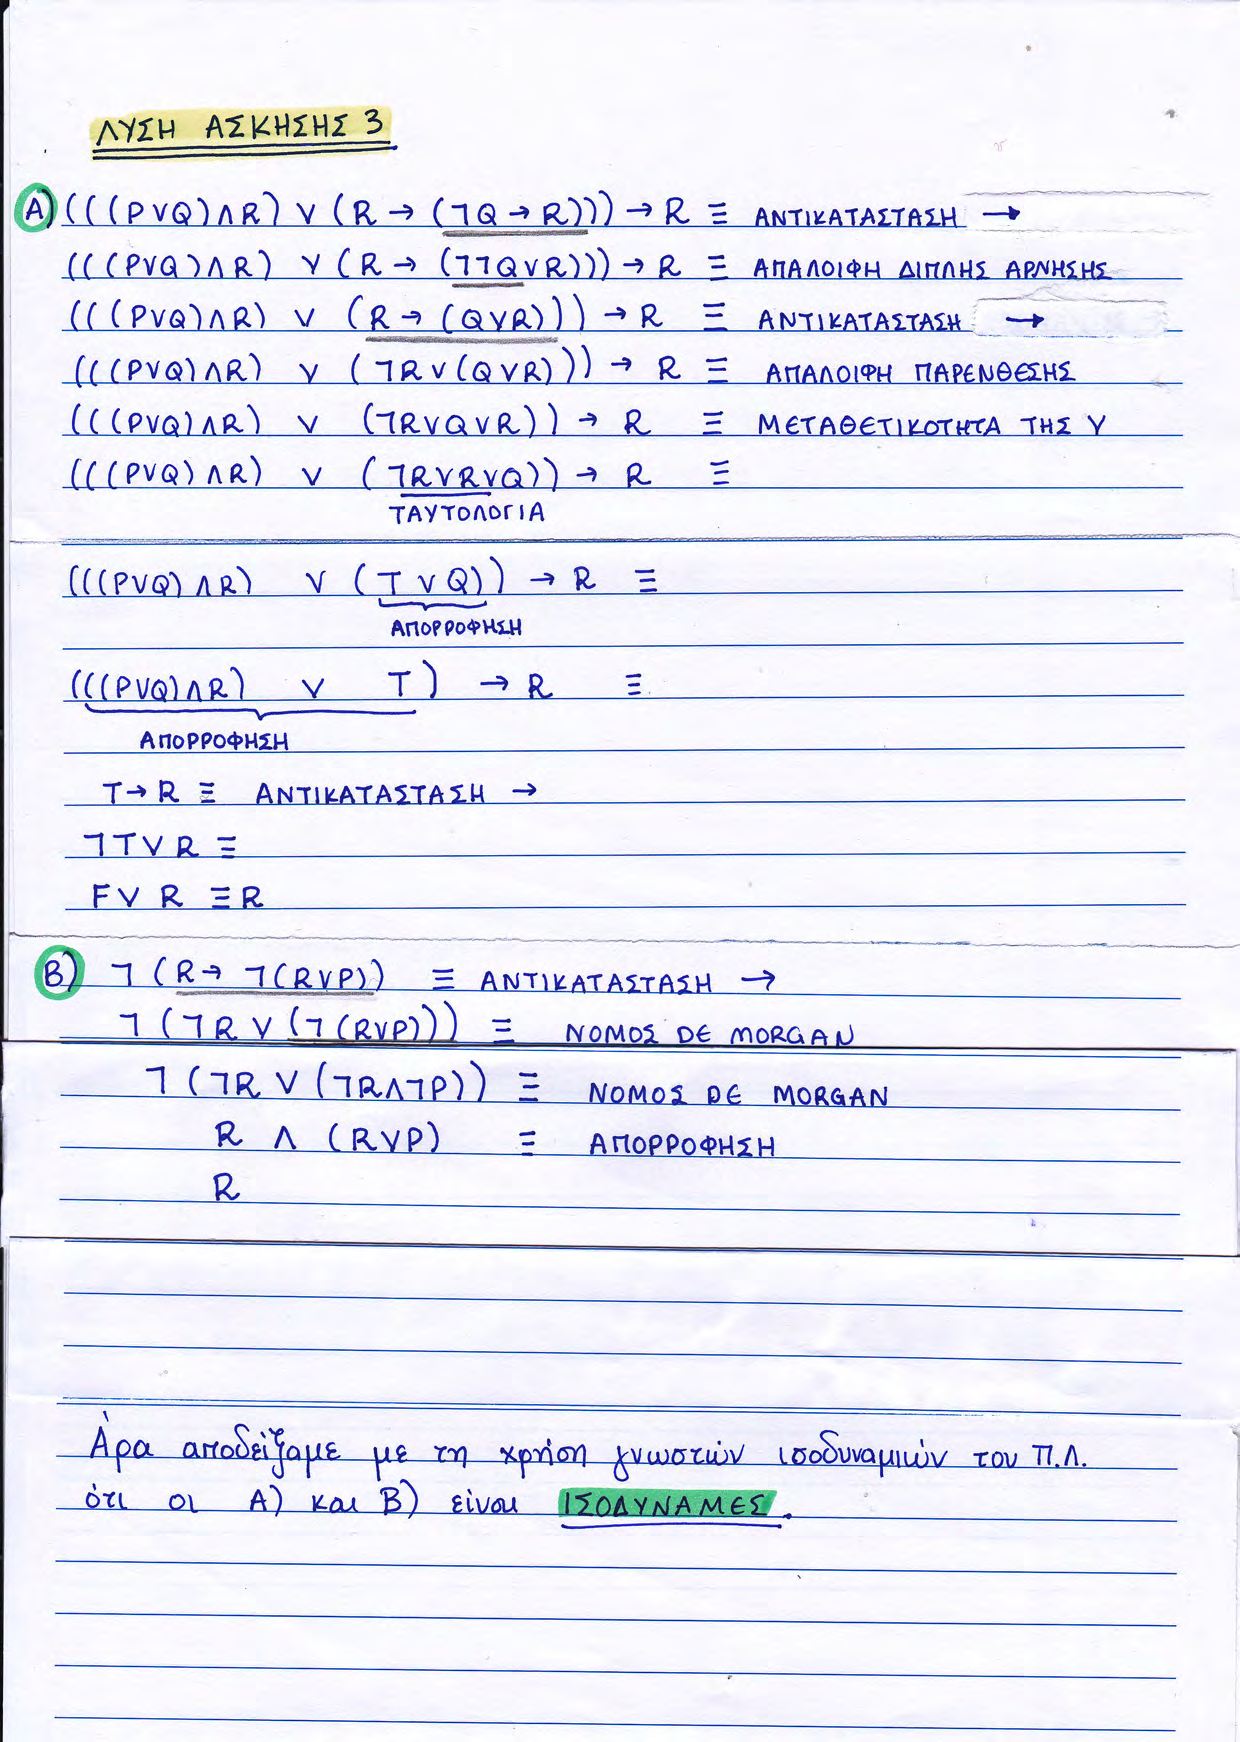 ΛΥΣΗ ΑΣΚΗΣΗΣ 3
Α) (((P∨Q)∧R) ∨ (R → (¬Q → R))) → R ≡ ΑΝΤΙΚΑΤΑΣΤΑΣΗ →
(((P∨Q)∧R) ∨ (R → (¬¬Q∨R))) → R ≡ ΑΠΑΛΟΙΦΗ ΔΙΠΛΗΣ ΑΡΝΗΣΗΣ
(((P∨Q)∧R) ∨ (R → (Q∨R))) → R ≡ ΑΝΤΙΚΑΤΑΣΤΑΣΗ →
(((P∨Q)∧R) ∨ (¬R∨(Q∨R))) → R ≡ ΑΠΑΛΟΙΦΗ ΠΑΡΕΝΘΕΣΗΣ
(((P∨Q)∧R) ∨ (¬R∨Q∨R)) → R ≡ ΜΕΤΑΘΕΤΙΚΟΤΗΤΑ ΤΗΣ ∨
(((P∨Q)∧R) ∨ (¬R∨R∨Q)) → R ≡
ΤΑΥΤΟΛΟΓΙΑ
(((P∨Q)∧R) ∨ (T ∨ Q)) → R ≡
ΑΠΟΡΡΟΦΗΣΗ
(((P∨Q)∧R) ∨ T) → R ≡
ΑΠΟΡΡΟΦΗΣΗ
T → R ≡ ΑΝΤΙΚΑΤΑΣΤΑΣΗ →
¬T ∨ R ≡
F ∨ R ≡ R
Β) ¬ (R → ¬(R∨P)) ≡ ΑΝΤΙΚΑΤΑΣΤΑΣΗ →
¬ (¬R ∨ (¬(R∨P))) ≡ ΝΟΜΟΣ DE MORGAN
¬ (¬R ∨ (¬R∧¬P)) ≡ ΝΟΜΟΣ DE MORGAN
R ∧ (R∨P) ≡ ΑΠΟΡΡΟΦΗΣΗ
R
Άρα αποδείξαμε με τη χρήση γνωστών ισοδυναμιών του Π.Λ.
ότι οι Α) και Β) είναι ΙΣΟΔΥΝΑΜΕΣ.